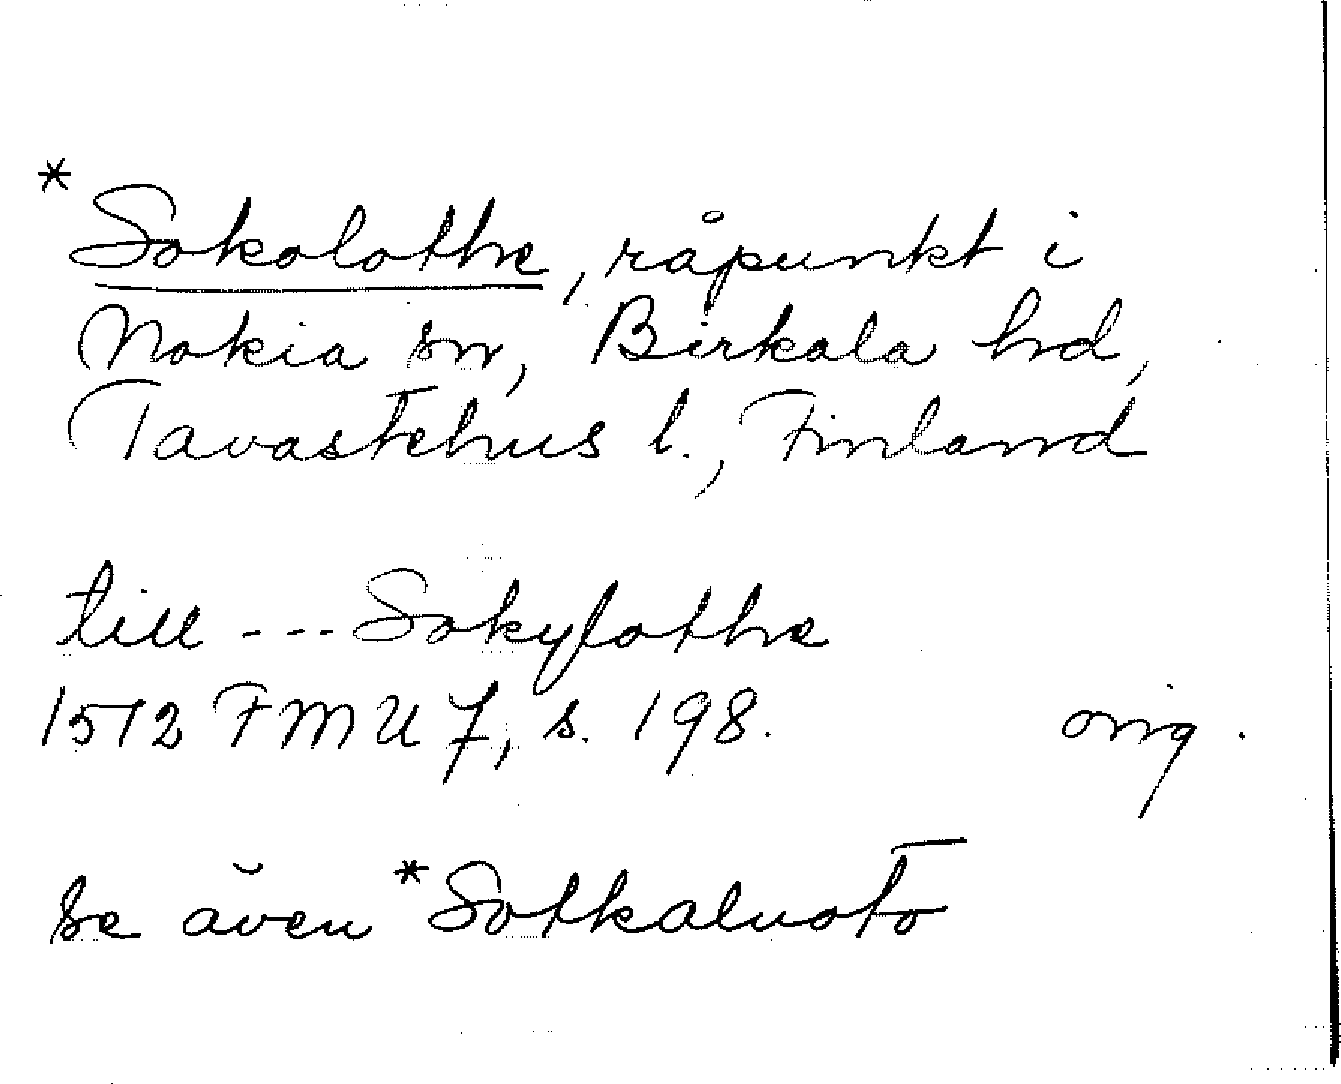 *Sokolothe, råpunkt i
Nokia sn, Birkala hd,
Tavastehus l., Finland
till --- Sokylothe
1512 FMU 7, s. 198. orig.
se även *Sotkaluoto